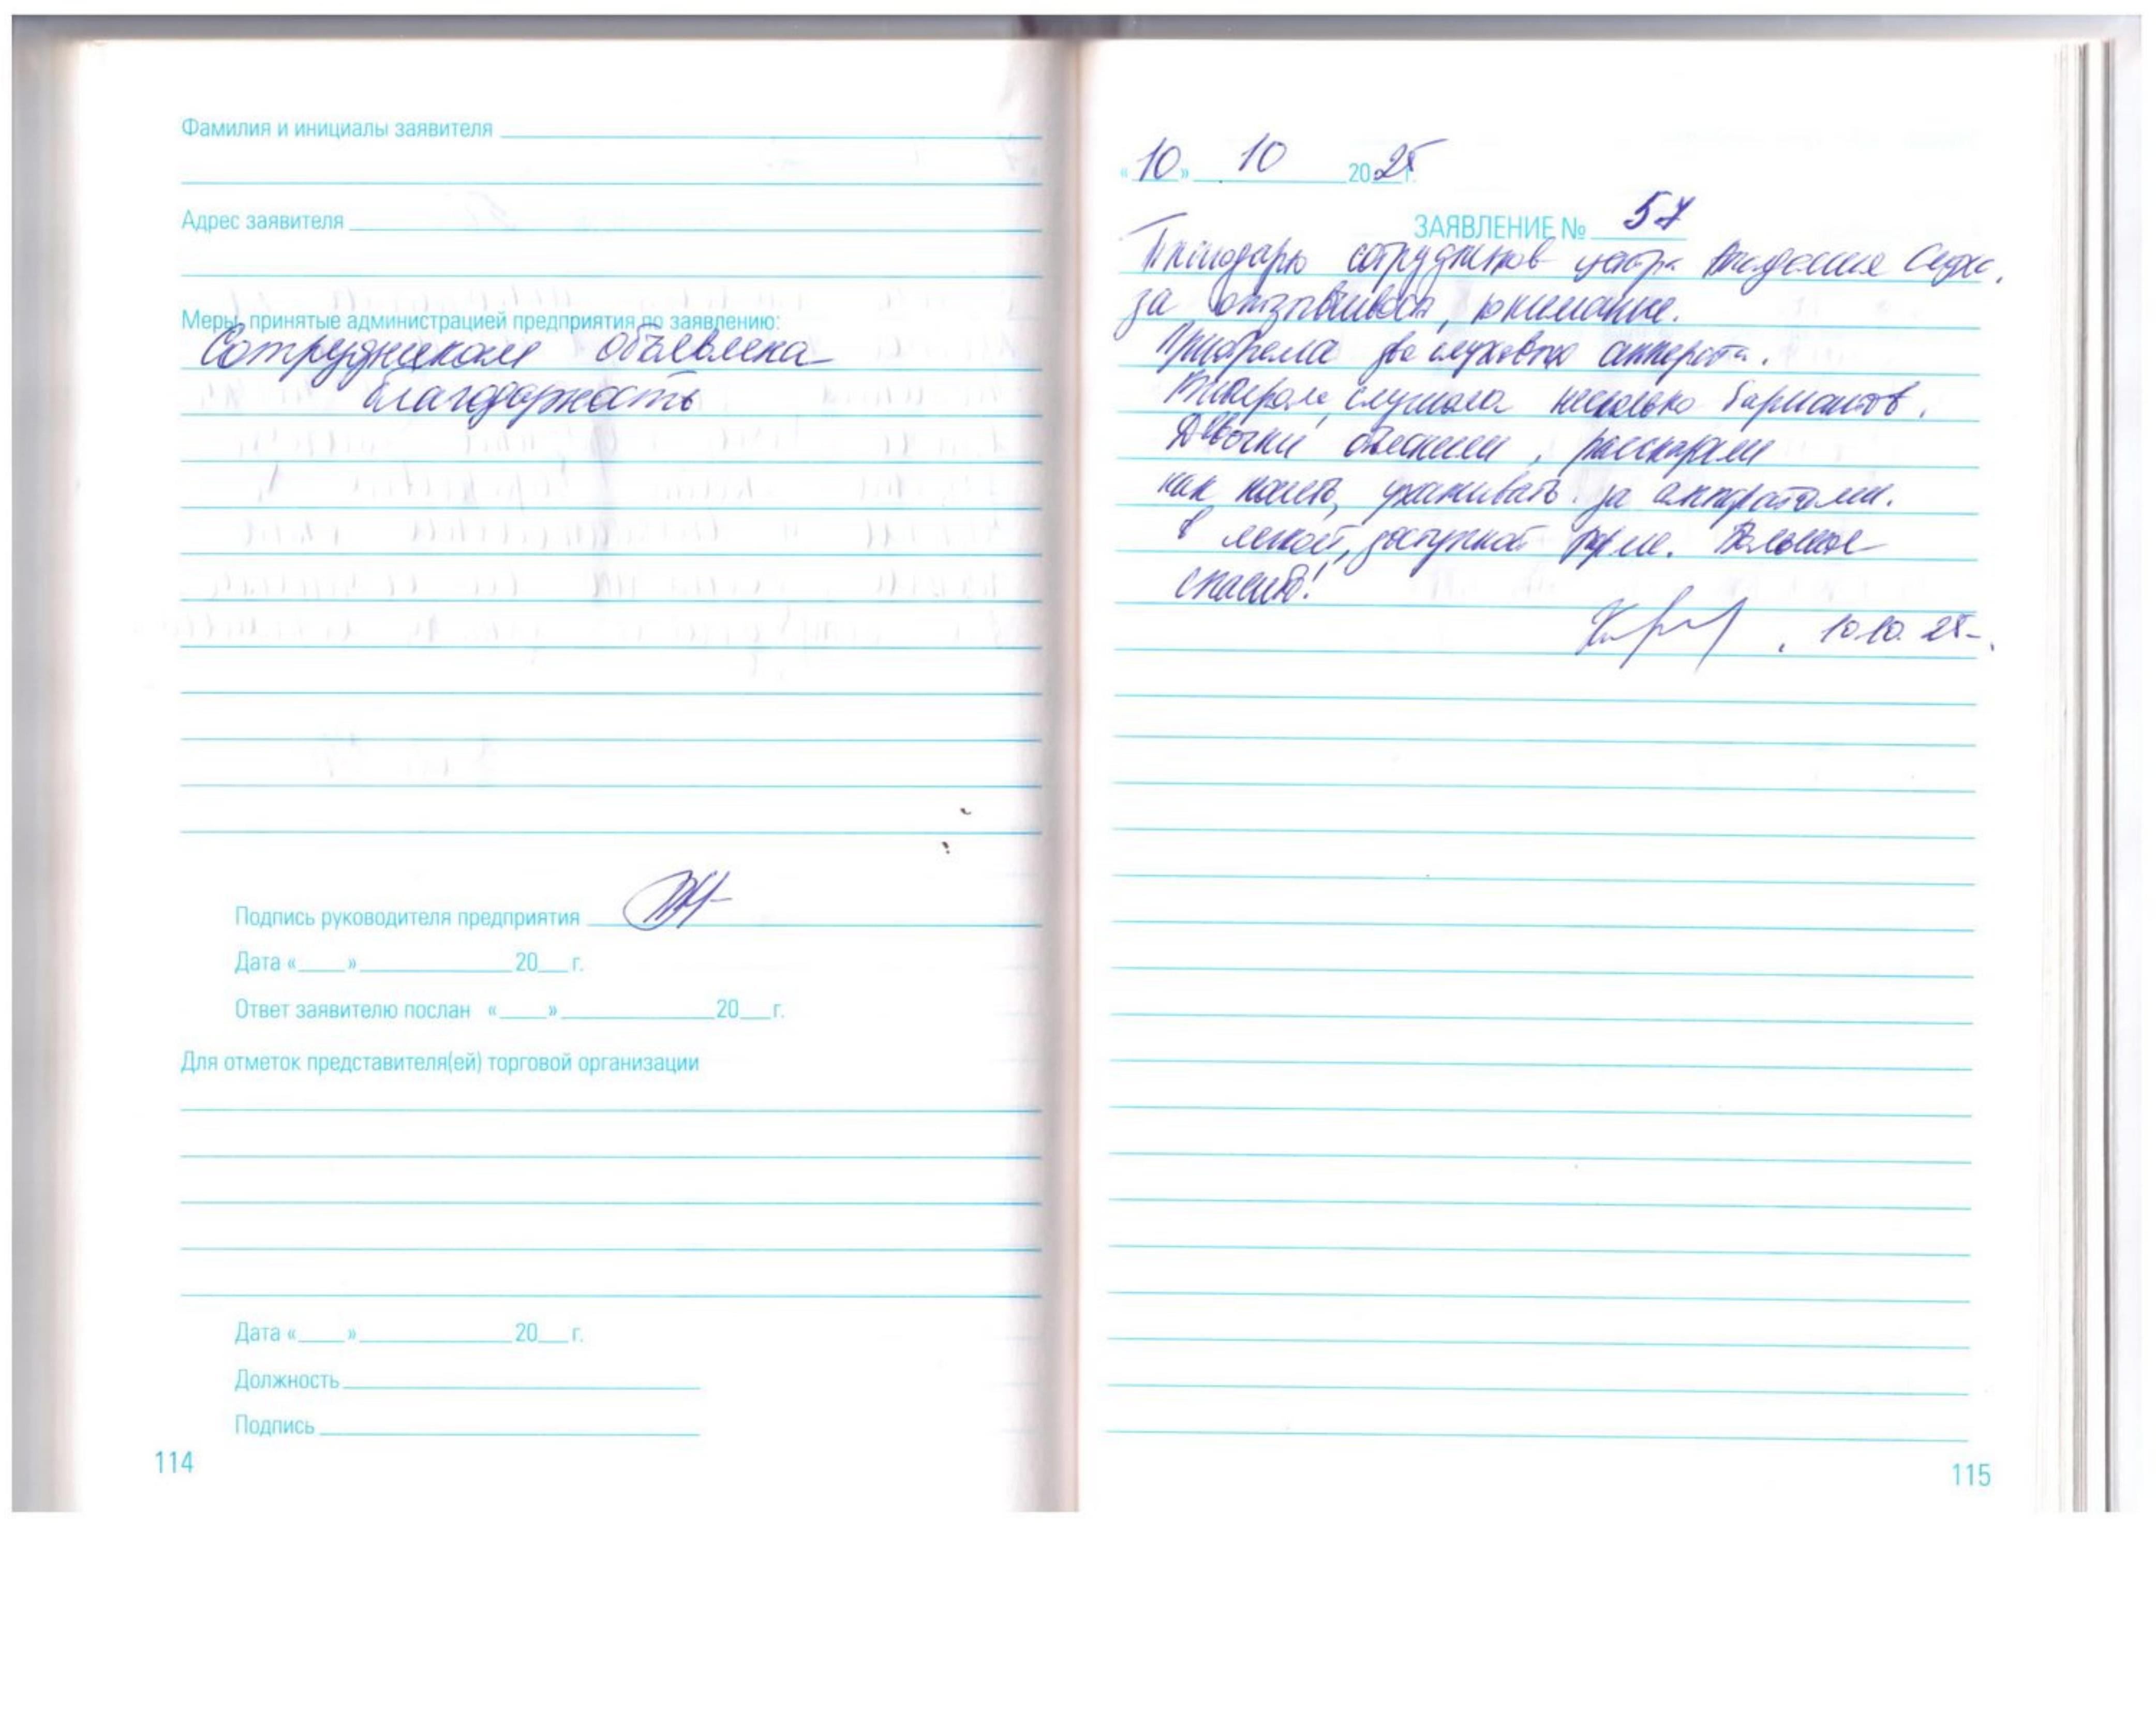 Фамилия и инициалы заявителя
Адрес заявителя
Меры, принятые администрацией предприятия по заявлению:
Сотрудникам объявлена
благодарность
Подпись руководителя предприятия
Дата «    »              20    г.
Ответ заявителю послан «    »              20    г.
Для отметок представителя(ей) торговой организации
Дата «    »              20    г.
Должность
Подпись
114
«10» 10 2025 г.
ЗАЯВЛЕНИЕ № 57
Благодарю сотрудников центра Академия Слуха,
за отзывчивость, понимание.
Приобрела два слуховых аппарата.
Выбирала, слушала несколько вариантов.
Девочки объяснили, рассказали
как носить, ухаживать за аппаратами.
в легкой, доступной форме. Большое
спасибо!
10.10.25
115